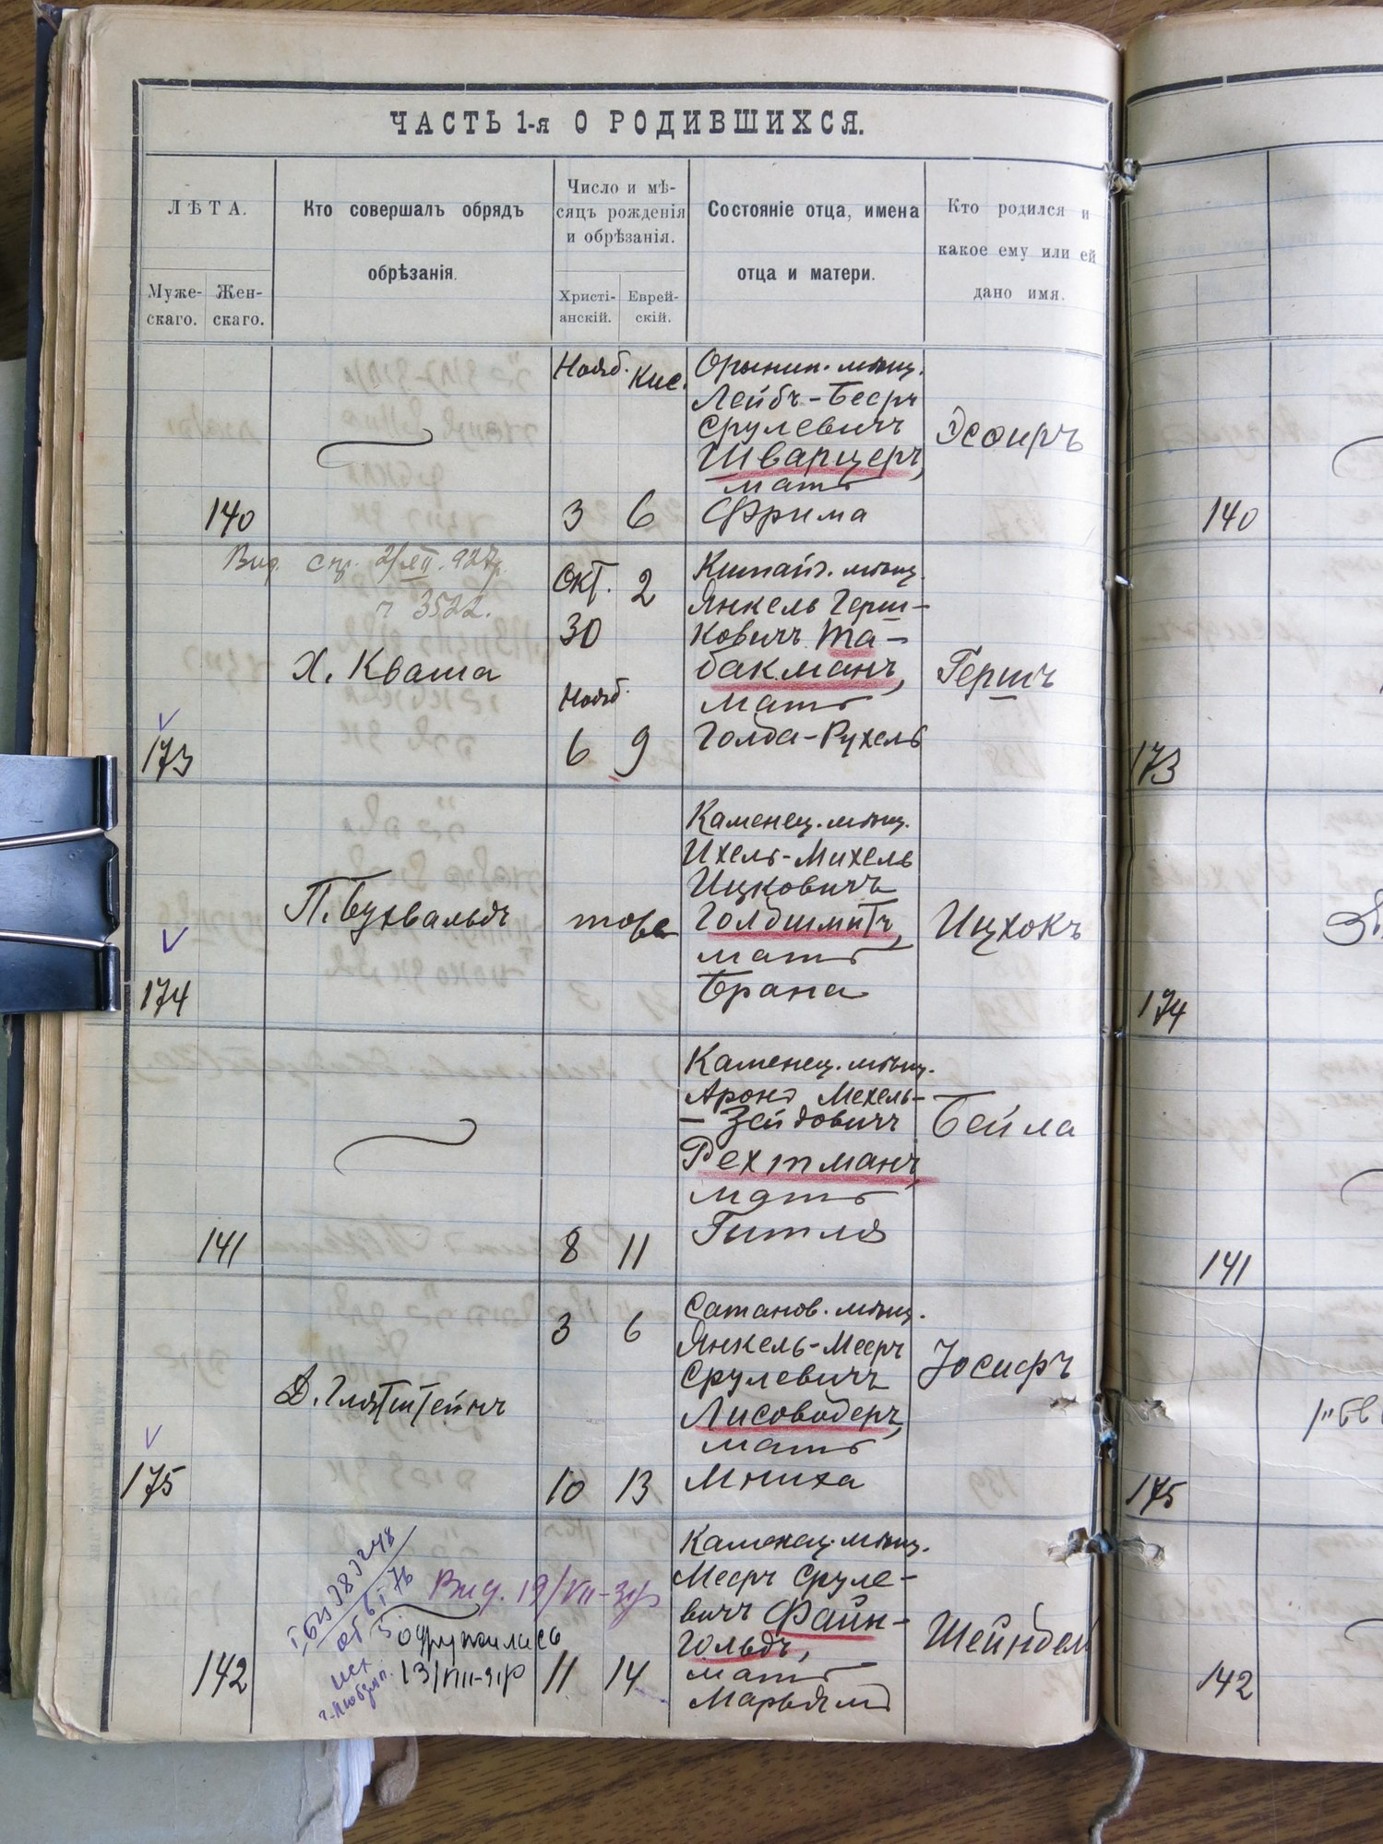 ЧАСТЬ 1-я О РОДИВШИХСЯ.
ЛѢТА.
Муже-
скаго.
Жен-
скаго.
Кто совершалъ обрядъ
обрѣзанія.
Число и мѣ-
сяцъ рожденія
и обрѣзанія.
Христі-
анскій.
Еврей-
скій.
Состояніе отца, имена
отца и матери.
Кто родился и
какое ему или ей
дано имя.
140
Нояб. Кис.
3 6
Орынин. мѣщ.
Лейбъ-Бееръ
Срулевичъ
Шварцеръ,
мать
Фрима
Эсѳиръ
140
Вид. спр. 2/XII. 927р.
ч 3522.
173
Х. Кваша
Окт. 2
30
Нояб.
6 9
Китайг. мѣщ.
Янкель Герш-
ковичъ Та-
бакманъ,
мать
Голда-Рухель
Гершъ
173
174
П. Бухвальдъ
тоже
Каменец. мѣщ.
Ихель-Михель
Ицковичъ
Голдшмитъ,
мать
Брана
Ицхокъ
174
141
8 11
Каменец. мѣщ.
Аронъ Мехель-
-Зейдовичъ
Рехтманъ,
мать
Гитля
Бейла
141
175
Д. Глятштейнъ
3 6
10 13
Сатанов. мѣщ.
Янкель-Мееръ
Срулевичъ
Лисоводеръ,
мать
Мниха
Іосифъ
175
142
Вид. 19/VII-31р
одружилась
13/VIII-31р
11 14
Каменец. мѣщ.
Мееръ Сруле-
вичъ Файн-
гольдъ,
мать
Марьямъ
Шейндель
142